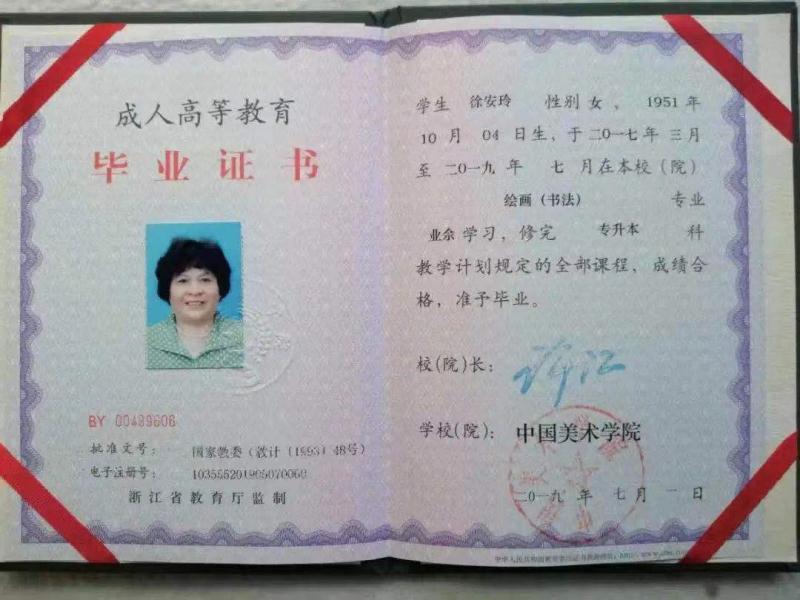 成人高等教育
毕业证书
BY 00489606
批准文号: 国家教委(教计(1993)48号)
电子注册号: 103555201905070060
浙江省教育厅监制
学生 徐安玲 性别 女, 1951 年
10 月 04 日生, 于二〇一七年 三月
至 二〇一九 年 七 月在本校(院)
绘画(书法) 专业
业余 学习, 修完 专升本 科
教学计划规定的全部课程, 成绩合
格, 准予毕业。
校(院)长: 许江
学校(院): 中国美术学院
二〇一九 年 七 月 一 日